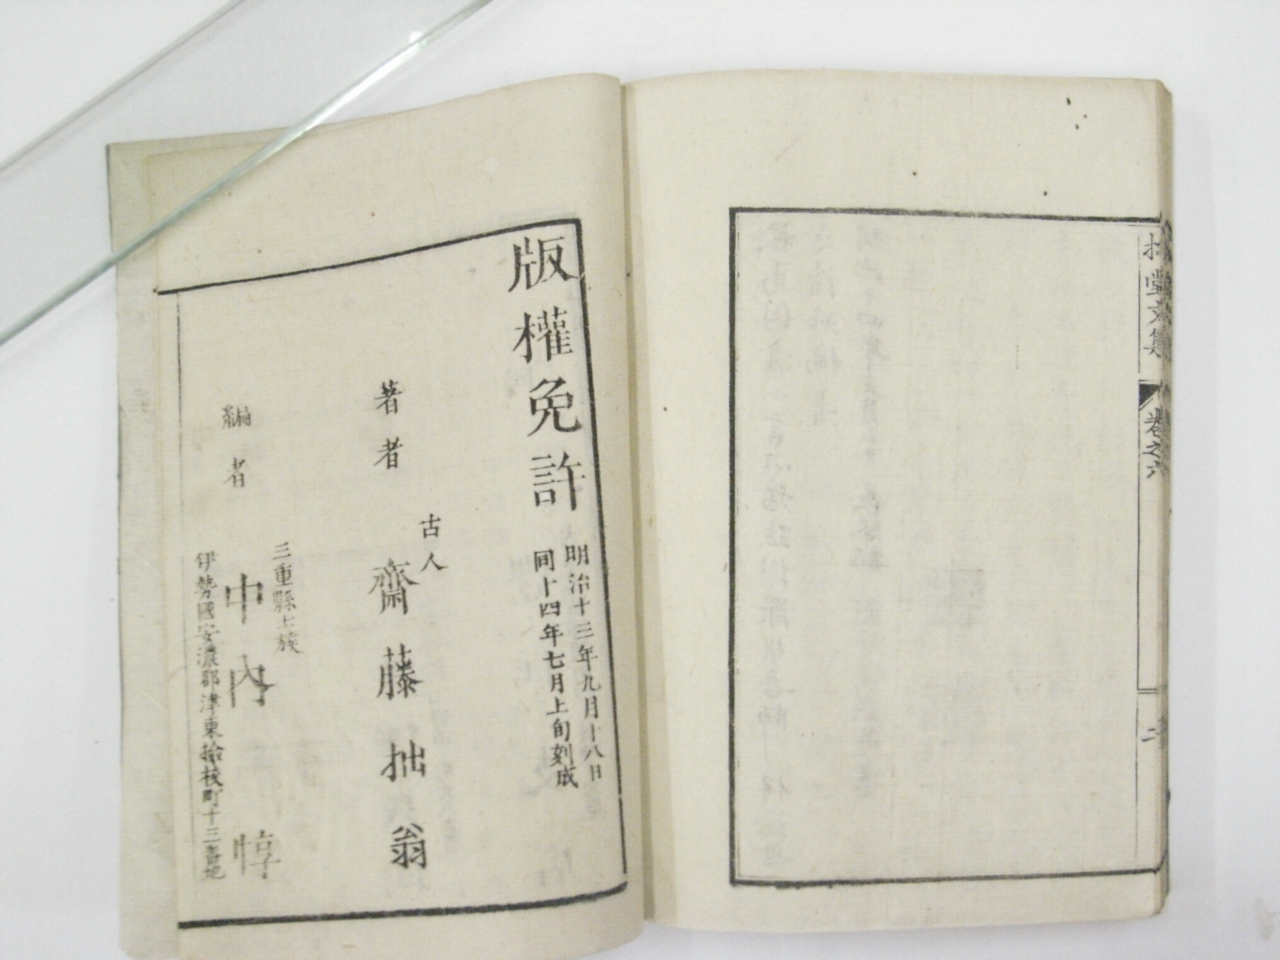 拙堂文集
卷之六
版權免許
明治十三年九月十八日
同十四年七月上旬刻成
著者
古人
齋藤拙翁
編者
三重縣士族
中內惇
伊勢國安濃郡津東拾棧町十三番地